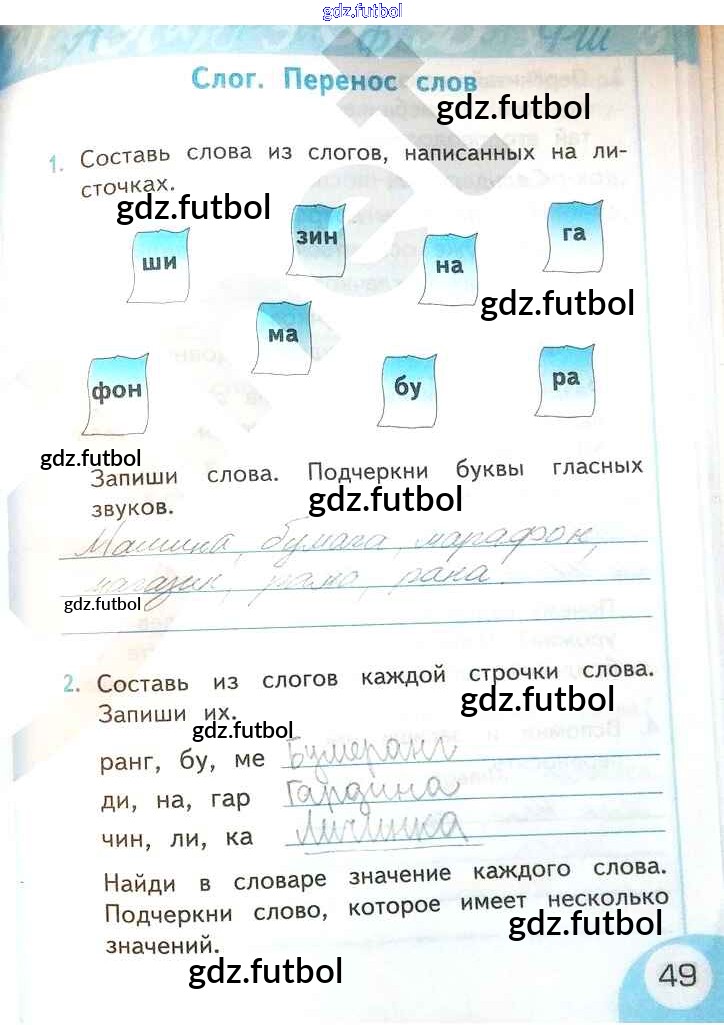 gdz.futbol
Слог. Перенос слов
gdz.futbol
1. Составь слова из слогов, написанных на ли-
сточках.
gdz.futbol
ши
зин
на
га
gdz.futbol
ма
фон
бу
ра
gdz.futbol
Запиши слова. Подчеркни буквы гласных
звуков.
gdz.futbol
Машина, бумага, марафон,
магазин, рама, рана.
gdz.futbol
2. Составь из слогов каждой строчки слова.
gdz.futbol
Запиши их.
gdz.futbol
ранг, бу, ме Бумеранг
ди, на, гар Гардина
чин, ли, ка Личинка
Найди в словаре значение каждого слова.
Подчеркни слово, которое имеет несколько
gdz.futbol
значений.
gdz.futbol
49